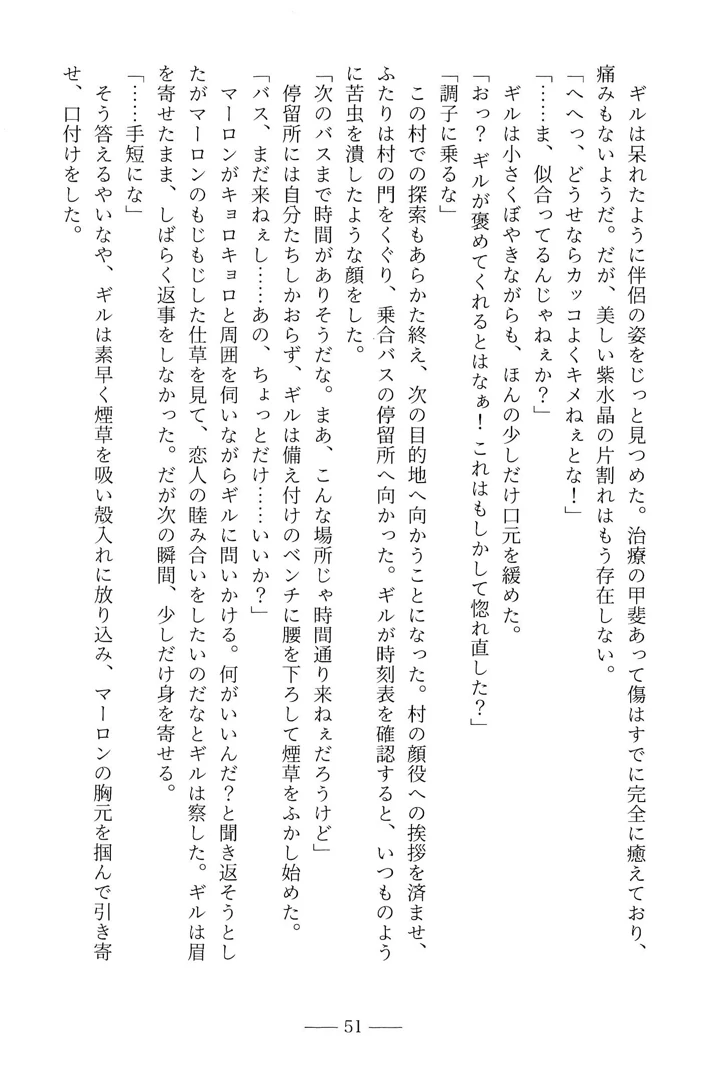 ギルは呆れたように伴侶の姿をじっと見つめた。治療の甲斐あって傷はすでに完全に癒えており、
痛みもないようだ。だが、美しい紫水晶の片割れはもう存在しない。
「へへっ、どうせならカッコよくキメねぇとな！」
「……ま、似合ってるんじゃねぇか？」
　ギルは小さくぼやきながらも、ほんの少しだけ口元を緩めた。
「おっ？　ギルが褒めてくれるとはなぁ！　これはもしかして惚れ直した？」
「調子に乗るな」
　この村での探索もあらかた終え、次の目的地へ向かうことになった。村の顔役への挨拶を済ませ、
ふたりは村の門をくぐり、乗合バスの停留所へ向かった。ギルが時刻表を確認すると、いつものよう
に苦虫を潰したような顔をした。
「次のバスまで時間がありそうだな。まあ、こんな場所じゃ時間通り来ねぇだろうけど」
　停留所には自分たちしかおらず、ギルは備え付けのベンチに腰を下ろして煙草をふかし始めた。
「バス、まだ来ねぇし……あの、ちょっとだけ……いいか？」
　マーロンがキョロキョロと周囲を伺いながらギルに問いかける。何がいいんだ？と聞き返そうとし
たがマーロンのもじもじした仕草を見て、恋人の睦み合いをしたいのだなとギルは察した。ギルは眉
を寄せたまま、しばらく返事をしなかった。だが次の瞬間、少しだけ身を寄せる。
「……手短にな」
　そう答えるやいなや、ギルは素早く煙草を吸い殻入れに放り込み、マーロンの胸元を掴んで引き寄
せ、口付けをした。
― 51 ―